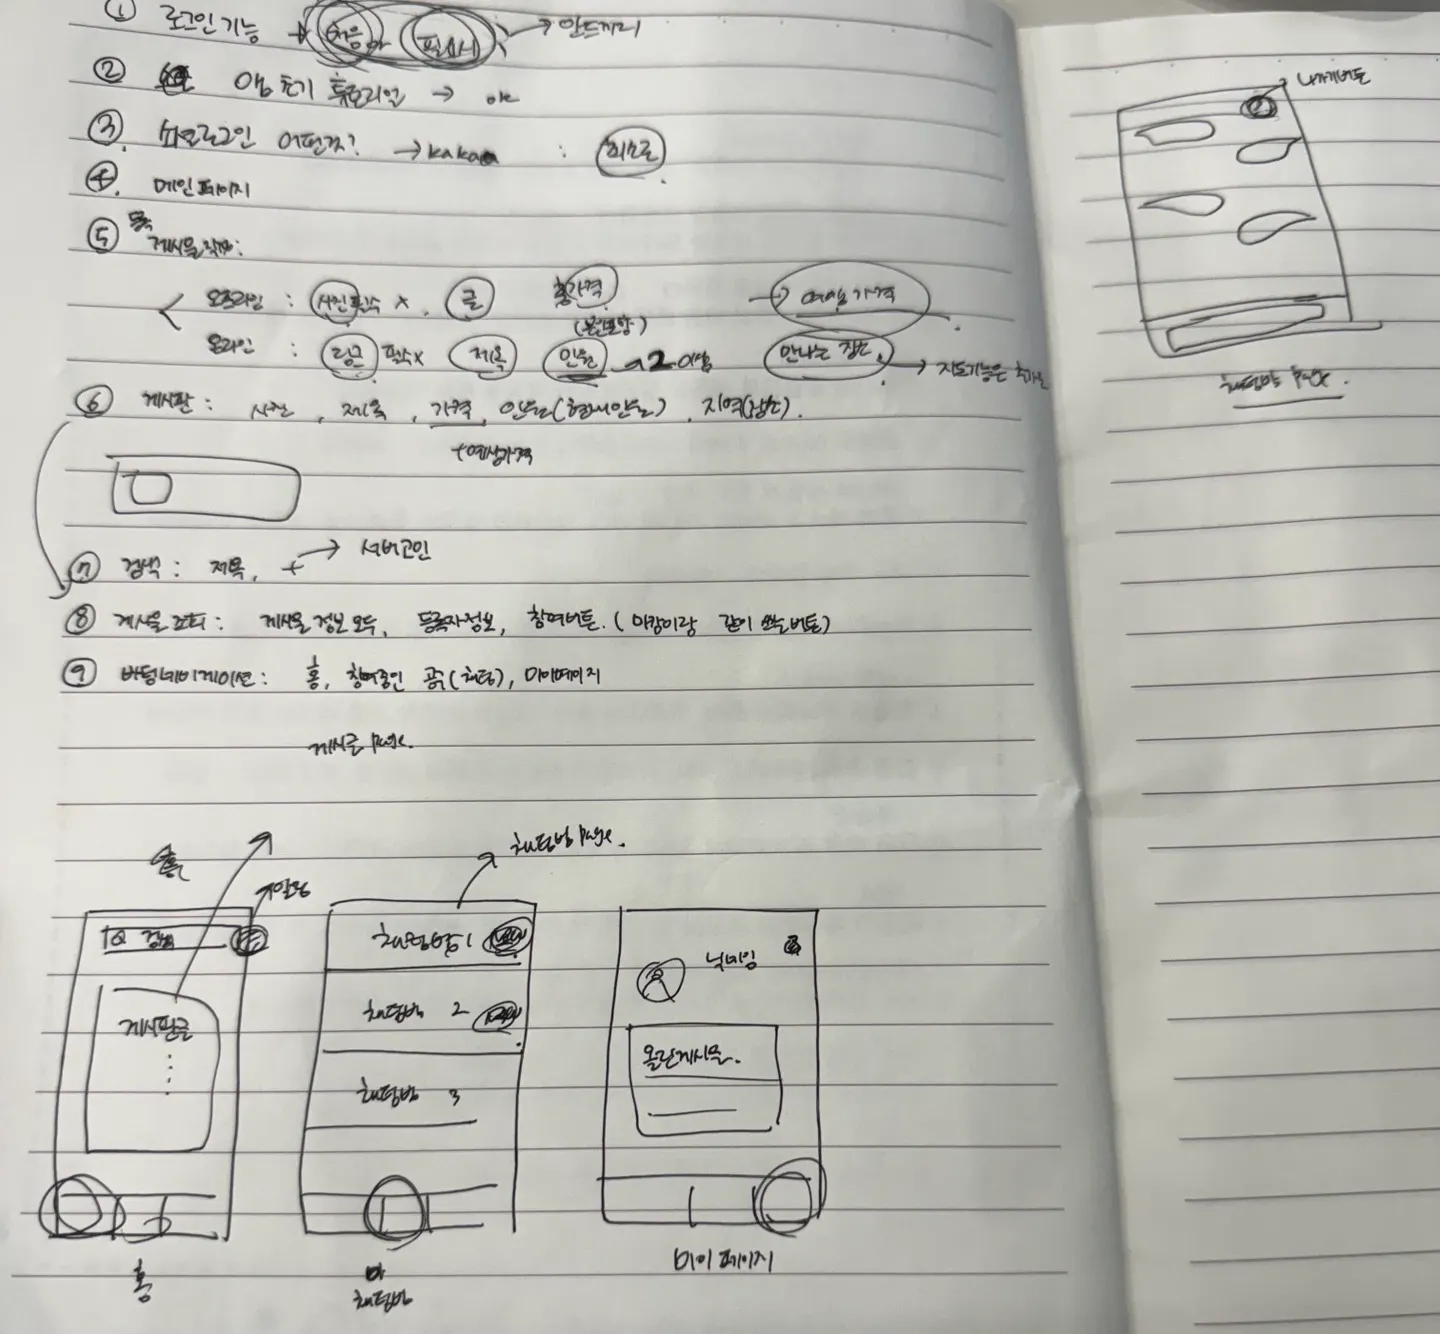 ① 로그인 기능 → 처음 필요시 → 안드까리
② 앱 초기 튜토리얼 → ok
③ 소셜로그인 어떤것? → kakao : 최소로
④ 메인 페이지
등록
⑤ 게시물 :
오프라인 : 사진 필수 x , 글 총가격 → 예상 가격
온라인 : 링크 필수x 제목 인원 → 2 이상 만나는 장소 → 지도기능은
⑥ 게시판 : 사진 , 제목 , 가격, 인원(현재인원) , 지역(장소).
+예상가격
⑦ 검색 : 제목, + → 서버고민
⑧ 게시물 : 게시물 정보 모두, 등록자정보, 참여버튼. ( 같이 버튼)
⑨ 바텀네비게이션 : 홈, 참여중인 공구(채팅), 마이페이지
게시글 page.
홈
알림
검색
게시판글
홈
채팅방 page.
채팅방 1
채팅방 2
채팅방 3
채팅방
닉네임
올린게시물.
마이 페이지
나가기버튼
채팅방 page.